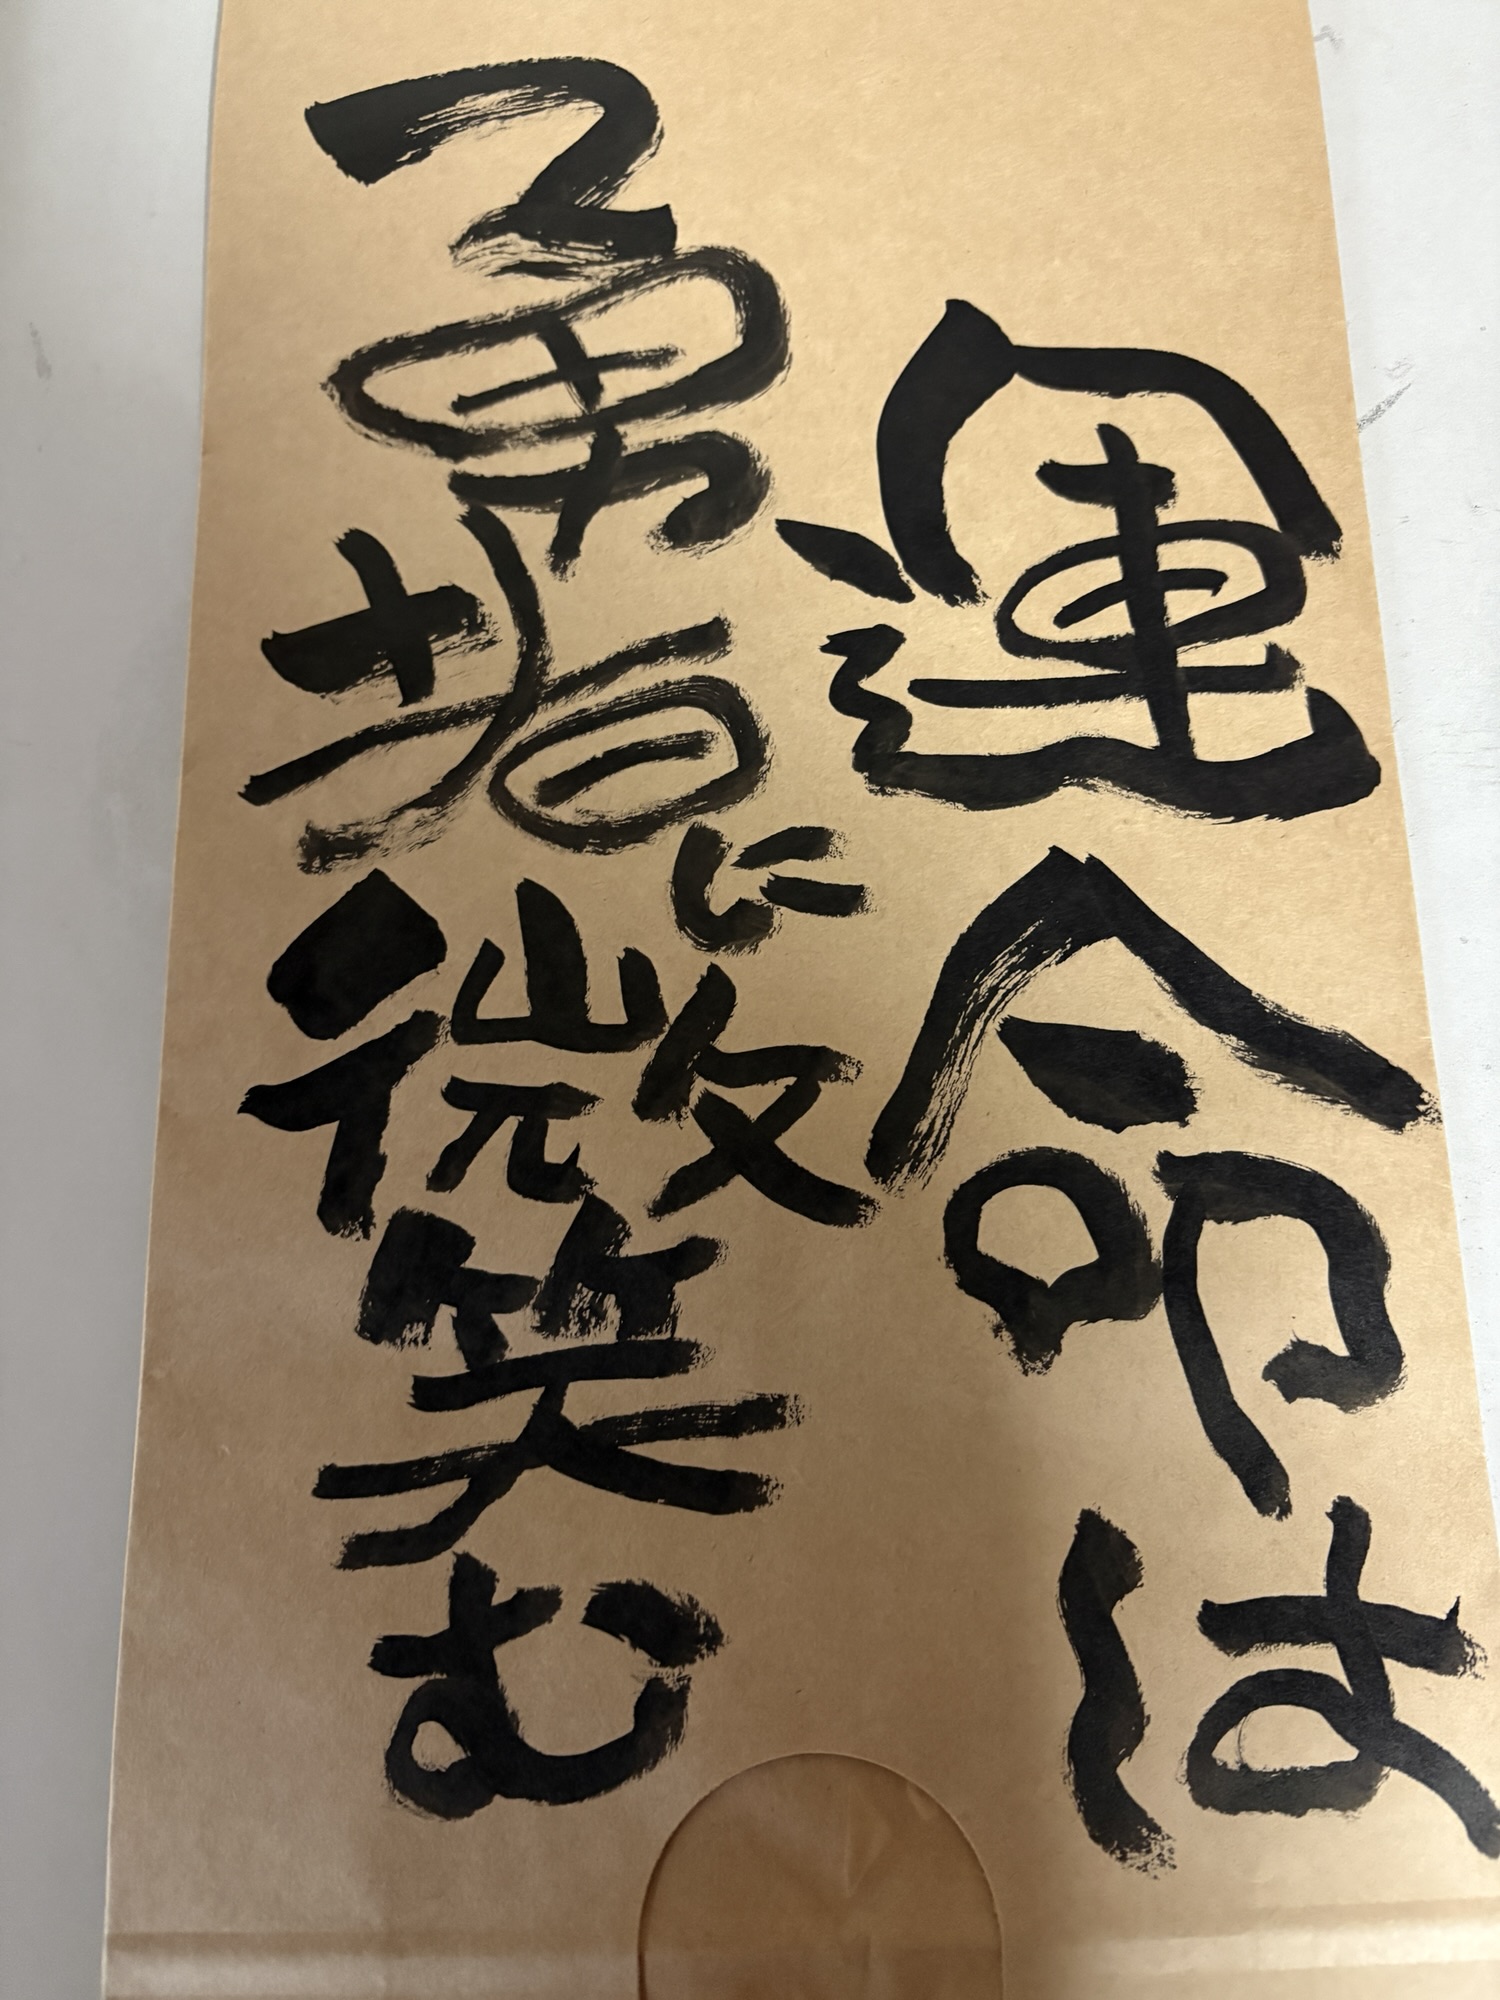 運命は
勇者に微笑む